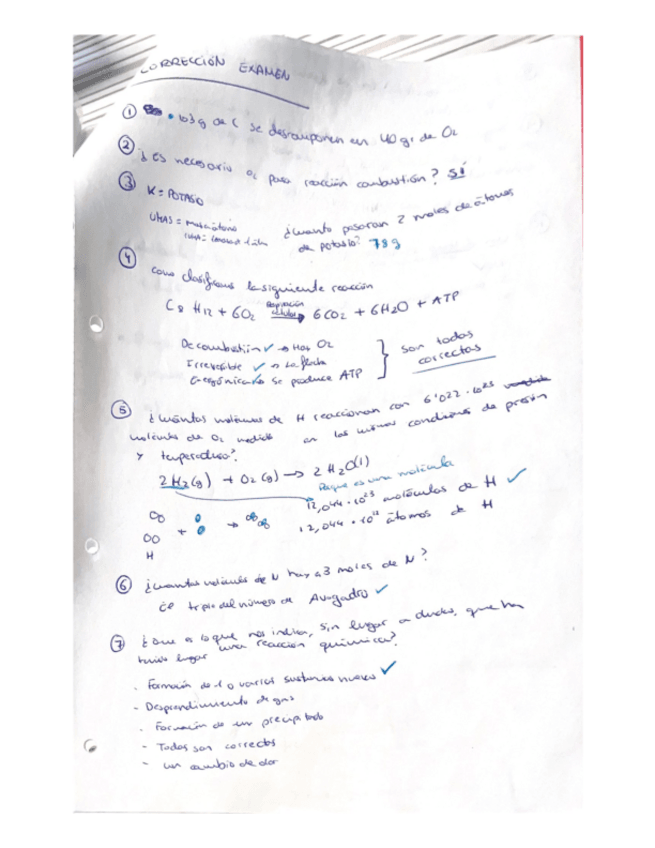 CORRECCIÓN EXAMEN
① 103 g de C se descomponen en 40 gr de O₂
② ¿Es necesario O₂ para reacción combustión? SÍ
③ K = POTASIO
UMAS =
¿Cuanto pesaran 2 moles de átomos
de potasio? 78 g
④ Como clasificamos la siguiente reacción
C8 H12 + 6O₂ → 6CO₂ + 6H₂O + ATP
Respiración celular
De combustión ✓ → Hay O₂
Irreversible ✓ → La flecha
Exergónica ✓ → Se produce ATP
son todas
correctas
⑤ ¿Cuántas moléculas de H reaccionan con 6'022 · 10²³
moléculas de O₂ medido en las mismas condiciones de presión
y temperatura?
2 H₂(g) + O₂(g) → 2 H₂O(l)
Porque es una molécula
12,044 · 10²³ moléculas de H ✓
12,044 · 10²³ átomos de H
+ →
H
⑥ ¿Cuantas moléculas de N hay a 3 moles de N?
El triple del número de Avogadro ✓
⑦ ¿Que es lo que nos indica, sin lugar a dudas, que ha
tenido lugar una reacción química?
· Formación de 1 o varias sustancias nuevas ✓
- Desprendimiento de gas
· Formación de un precipitado
- Todas son correctas
- Un cambio de color